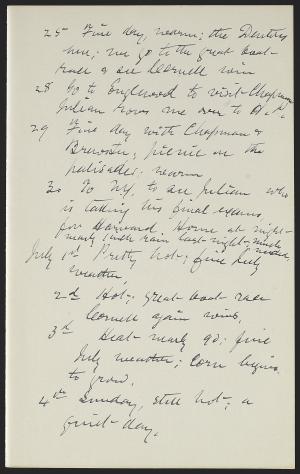 25 Fine day, warm; the Denters
here; we go to the great boat-
race & see Cornell win
28 Go to Englewood to visit Chapman
Julian rows me over to H. P.
29 Fine day with Chapman &
Brewster, picnic on the
palisades, warm
30 To N.Y. to see Julian who
is taking his final exams,
for Harvard. Home at night-
nearly 1 inch rain last night- much
needed,
July 1st Pretty hot; fine July
weather
2d Hot; great boat race
Cornell again wins.
3d Heat nearly 90; fine
July weather; Corn begins
to grow.
4th Sunday, still hot; a
quiet day.